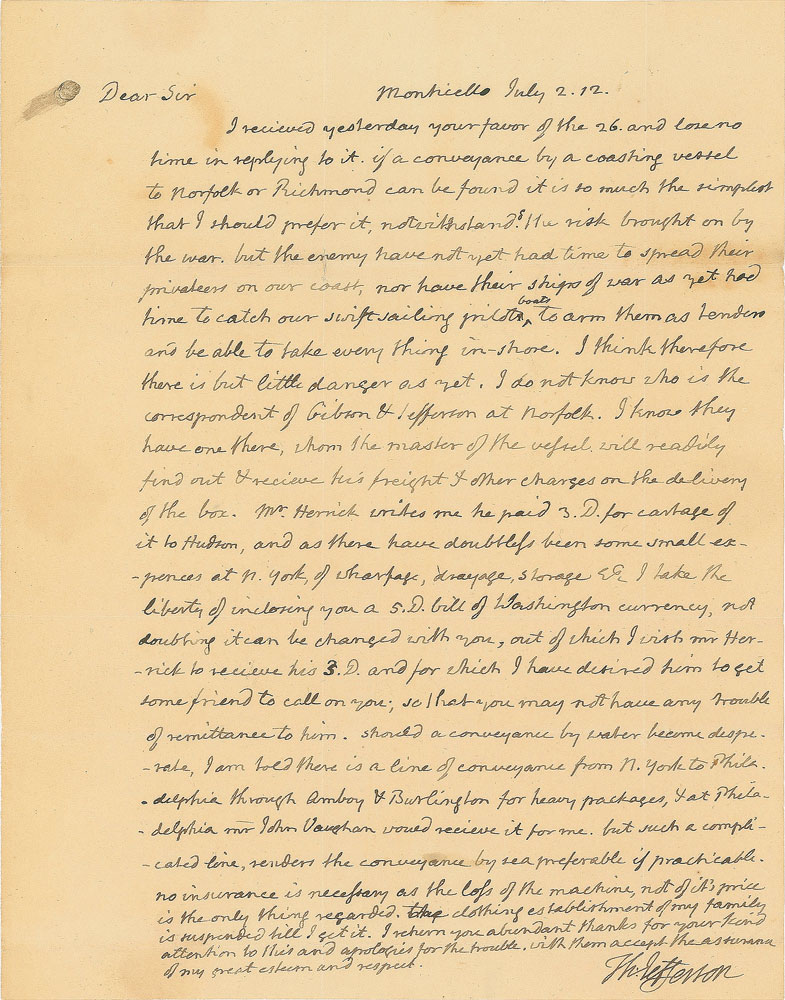 Dear Sir Monticello July 2. 12.
I recieved yesterday your favor of the 26. and lose no
time in replying to it. if a conveyance by a coasting vessel
to Norfolk or Richmond can be found it is so much the simplest
that I should prefer it, notwithstandg the risk brought on by
the war. but the enemy have not yet had time to spread their
privateers on our coast, nor have their ships of war as yet had
time to catch our swift sailing pilot boats, to arm them as tenders
and be able to take every thing in-shore. I think therefore
there is but little danger as yet. I do not know who is the
correspondent of Gibson & Jefferson at Norfolk. I know they
have one there, whom the master of the vessel will readily
find out & recieve his freight & other charges on the delivery
of the box. Mr. Herrick writes me he paid 3. D. for cartage of
it to Hudson, and as there have doubtless been some small ex-
-pences at N. York, of wharfage, drayage, storage &c I take the
liberty of inclosing you a 5. D. bill of Washington currency, not
doubting it can be changed with you, out of which I wish mr Her-
-rick to recieve his 3. D. and for which I have desired him to get
some friend to call on you; so that you may not have any trouble
of remittance to him. should a conveyance by water become despe-
-rate, I am told there is a line of conveyance from N. York to Phila-
-delphia through Amboy & Burlington for heavy packages, & at Phila-
-delphia mr John Vaughan would recieve it for me. but such a compli-
-cated line, renders the conveyance by sea preferable if practicable.
no insurance is necessary as the loss of the machine, not of it's price
is the only thing regarded. the clothing establishment of my family
is suspended till I get it. I return you abundant thanks for your kind
attention to this and apologies for the trouble. with them accept the assurance
of my great esteem and respect.
Th: Jefferson